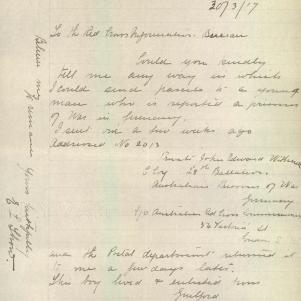 20/3/17
To the Red Cross Information Bureau
Could you kindly
tell me any way in which
I could send parcels to a young
man who is reported a prisoner
of War in Germany
I sent one a few weeks ago
addressed No 2013
Private John Edward
C Coy 28th Battalion
Australian Prisoner of War
Germany
c/o Australian Red Cross Commissioner
Victoria St
London
was the Postal department returned it
to me a few days later.
This boy lived & enlisted from
Guildford
Believe me
to remain
Yours faithfully